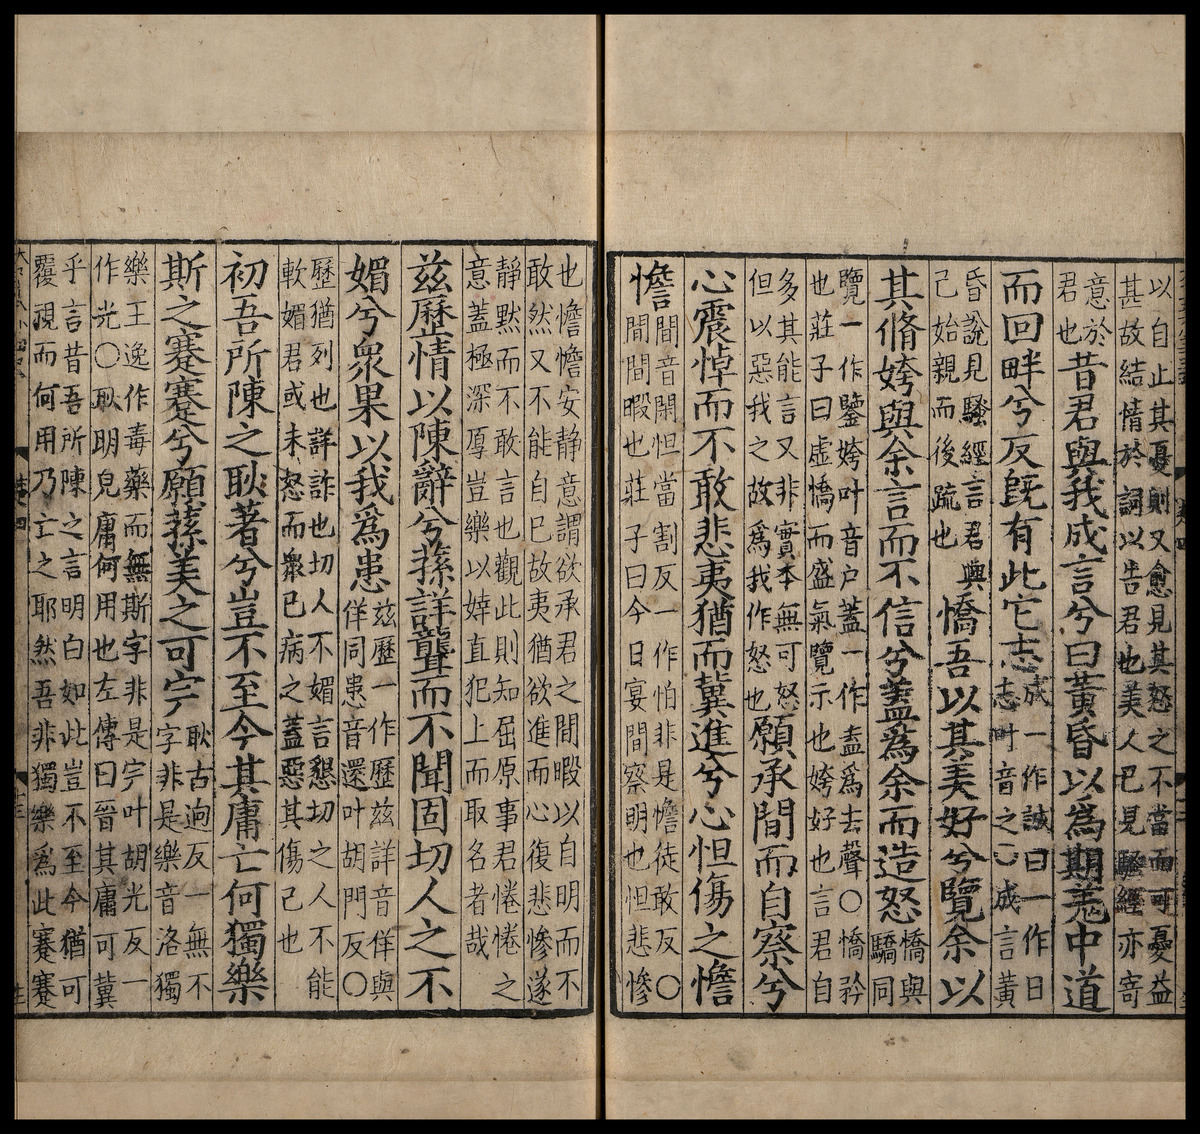 以自止其憂則又愈見其怒之不當而可憂益
甚故結情於詞以告君也美人已見騷經亦寄
意於
君也
昔君與我成言兮曰黃昏以為期羗中道
而回畔兮反旣有此它志
成一作誠曰一作日
志叶音之〇成言黃
昏說見騷經言君與
己始親而後疏也
憍吾以其美好兮覽余以
其脩姱與余言而不信兮蓋為余而造怒
憍與
驕同
覽一作鑒姱叶音户蓋一作盍為去聲〇憍矜
也莊子曰虛憍而盛氣覽示也姱好也言君自
多其能言又非實本無可怒
但以惡我之故為我作怒也
願承閒而自察兮
心震悼而不敢悲夷猶而冀進兮心怛傷之憺
憺
閒音閑怛當割反一作怕非是憺徒敢反〇
閒閒暇也莊子曰今日宴閒察明也怛悲慘
也憺憺安静意謂欲承君之閒暇以自明而不
敢然又不能自已故夷猶欲進而心復悲慘遂
静默而不敢言也觀此則知屈原事君惓惓之
意蓋極深厚豈樂以婞直犯上而取名者哉
兹歷情以陳辭兮蓀詳聾而不聞固切人之不
媚兮衆果以我爲患
兹歷一作歷兹詳音佯與
佯同患音還叶胡門反〇
歷猶列也詳詐也切人不媚言懇切之人不能
軟媚君或未怒而衆已病之蓋惡其傷己也
初吾所陳之耿著兮豈不至今其庸亡何獨樂
斯之蹇蹇兮願蓀美之可完
耿古迥反一無不
字非是樂音洛獨
樂王逸作毒藥而無斯字非是完叶胡光反一
作光〇耿明皃庸何用也左傳曰晉其庸可冀
乎言昔吾所陳之言明白如此豈不至今猶可
覆視而何用乃亡之耶然吾非獨樂爲此蹇蹇